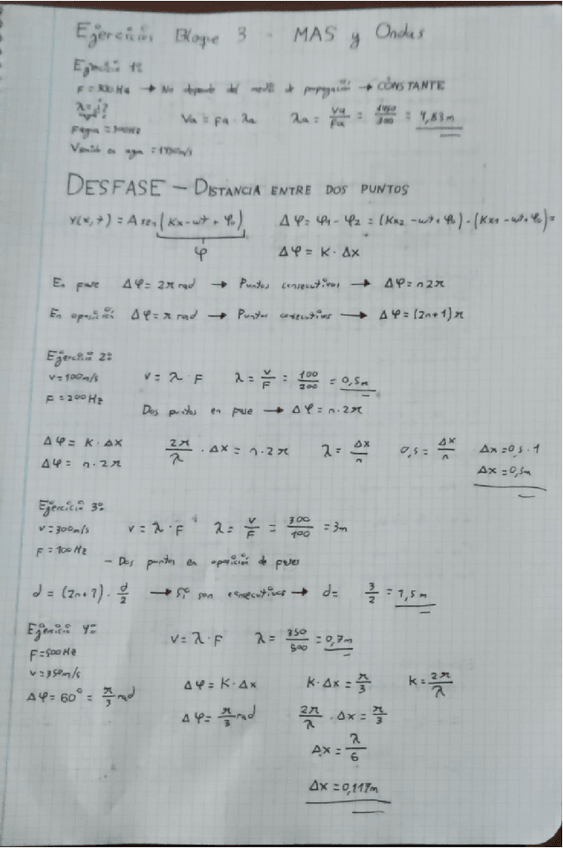 Ejercicios Bloque 3 - MAS y Ondas
Ejercicio 1º
F = 300Hz → No depende del medio de propagación → CONSTANTE
λagua = ¿?
Fagua = 300Hz
Va = Fa · λa λa = Va/Fa = 1450/300 = 4,83m
Vsonido en agua = 1450m/s
DESFASE — DISTANCIA ENTRE DOS PUNTOS
y(x,t) = A sen (Kx - wt + φ₀) Δφ = φ₁ - φ₂ = (Kx₂ - wt + φ₀) - (Kx₁ - wt + φ₀) =
φ Δφ = K · Δx
En fase Δφ = 2π rad → Puntos consecutivos → Δφ = n2π
En oposición Δφ = π rad → Puntos consecutivos → Δφ = (2n+1)π
Ejercicio 2º
V = 100m/s V = λ · F λ = V/F = 100/200 = 0,5m
F = 200Hz
Dos puntos en fase → Δφ = n · 2π
Δφ = K · Δx 2π/λ · Δx = n · 2π λ = Δx/n 0,5 = Δx/n Δx = 0,5 · 1
Δφ = n · 2π Δx = 0,5m
Ejercicio 3º
V = 300m/s V = λ · F λ = V/F = 300/100 = 3m
F = 100Hz
- Dos puntos en oposición de fases
d = (2n+1) · d/2 → Si son consecutivos → d = 3/2 = 1,5m
Ejercicio 4º
F = 500Hz V = λ · F λ = 350/500 = 0,7m
V = 350m/s
Δφ = 60° = π/3 rad Δφ = K · Δx K · Δx = π/3 K = 2π/λ
Δφ = π/3 rad 2π/λ · Δx = π/3
Δx = λ/6
Δx = 0,117m